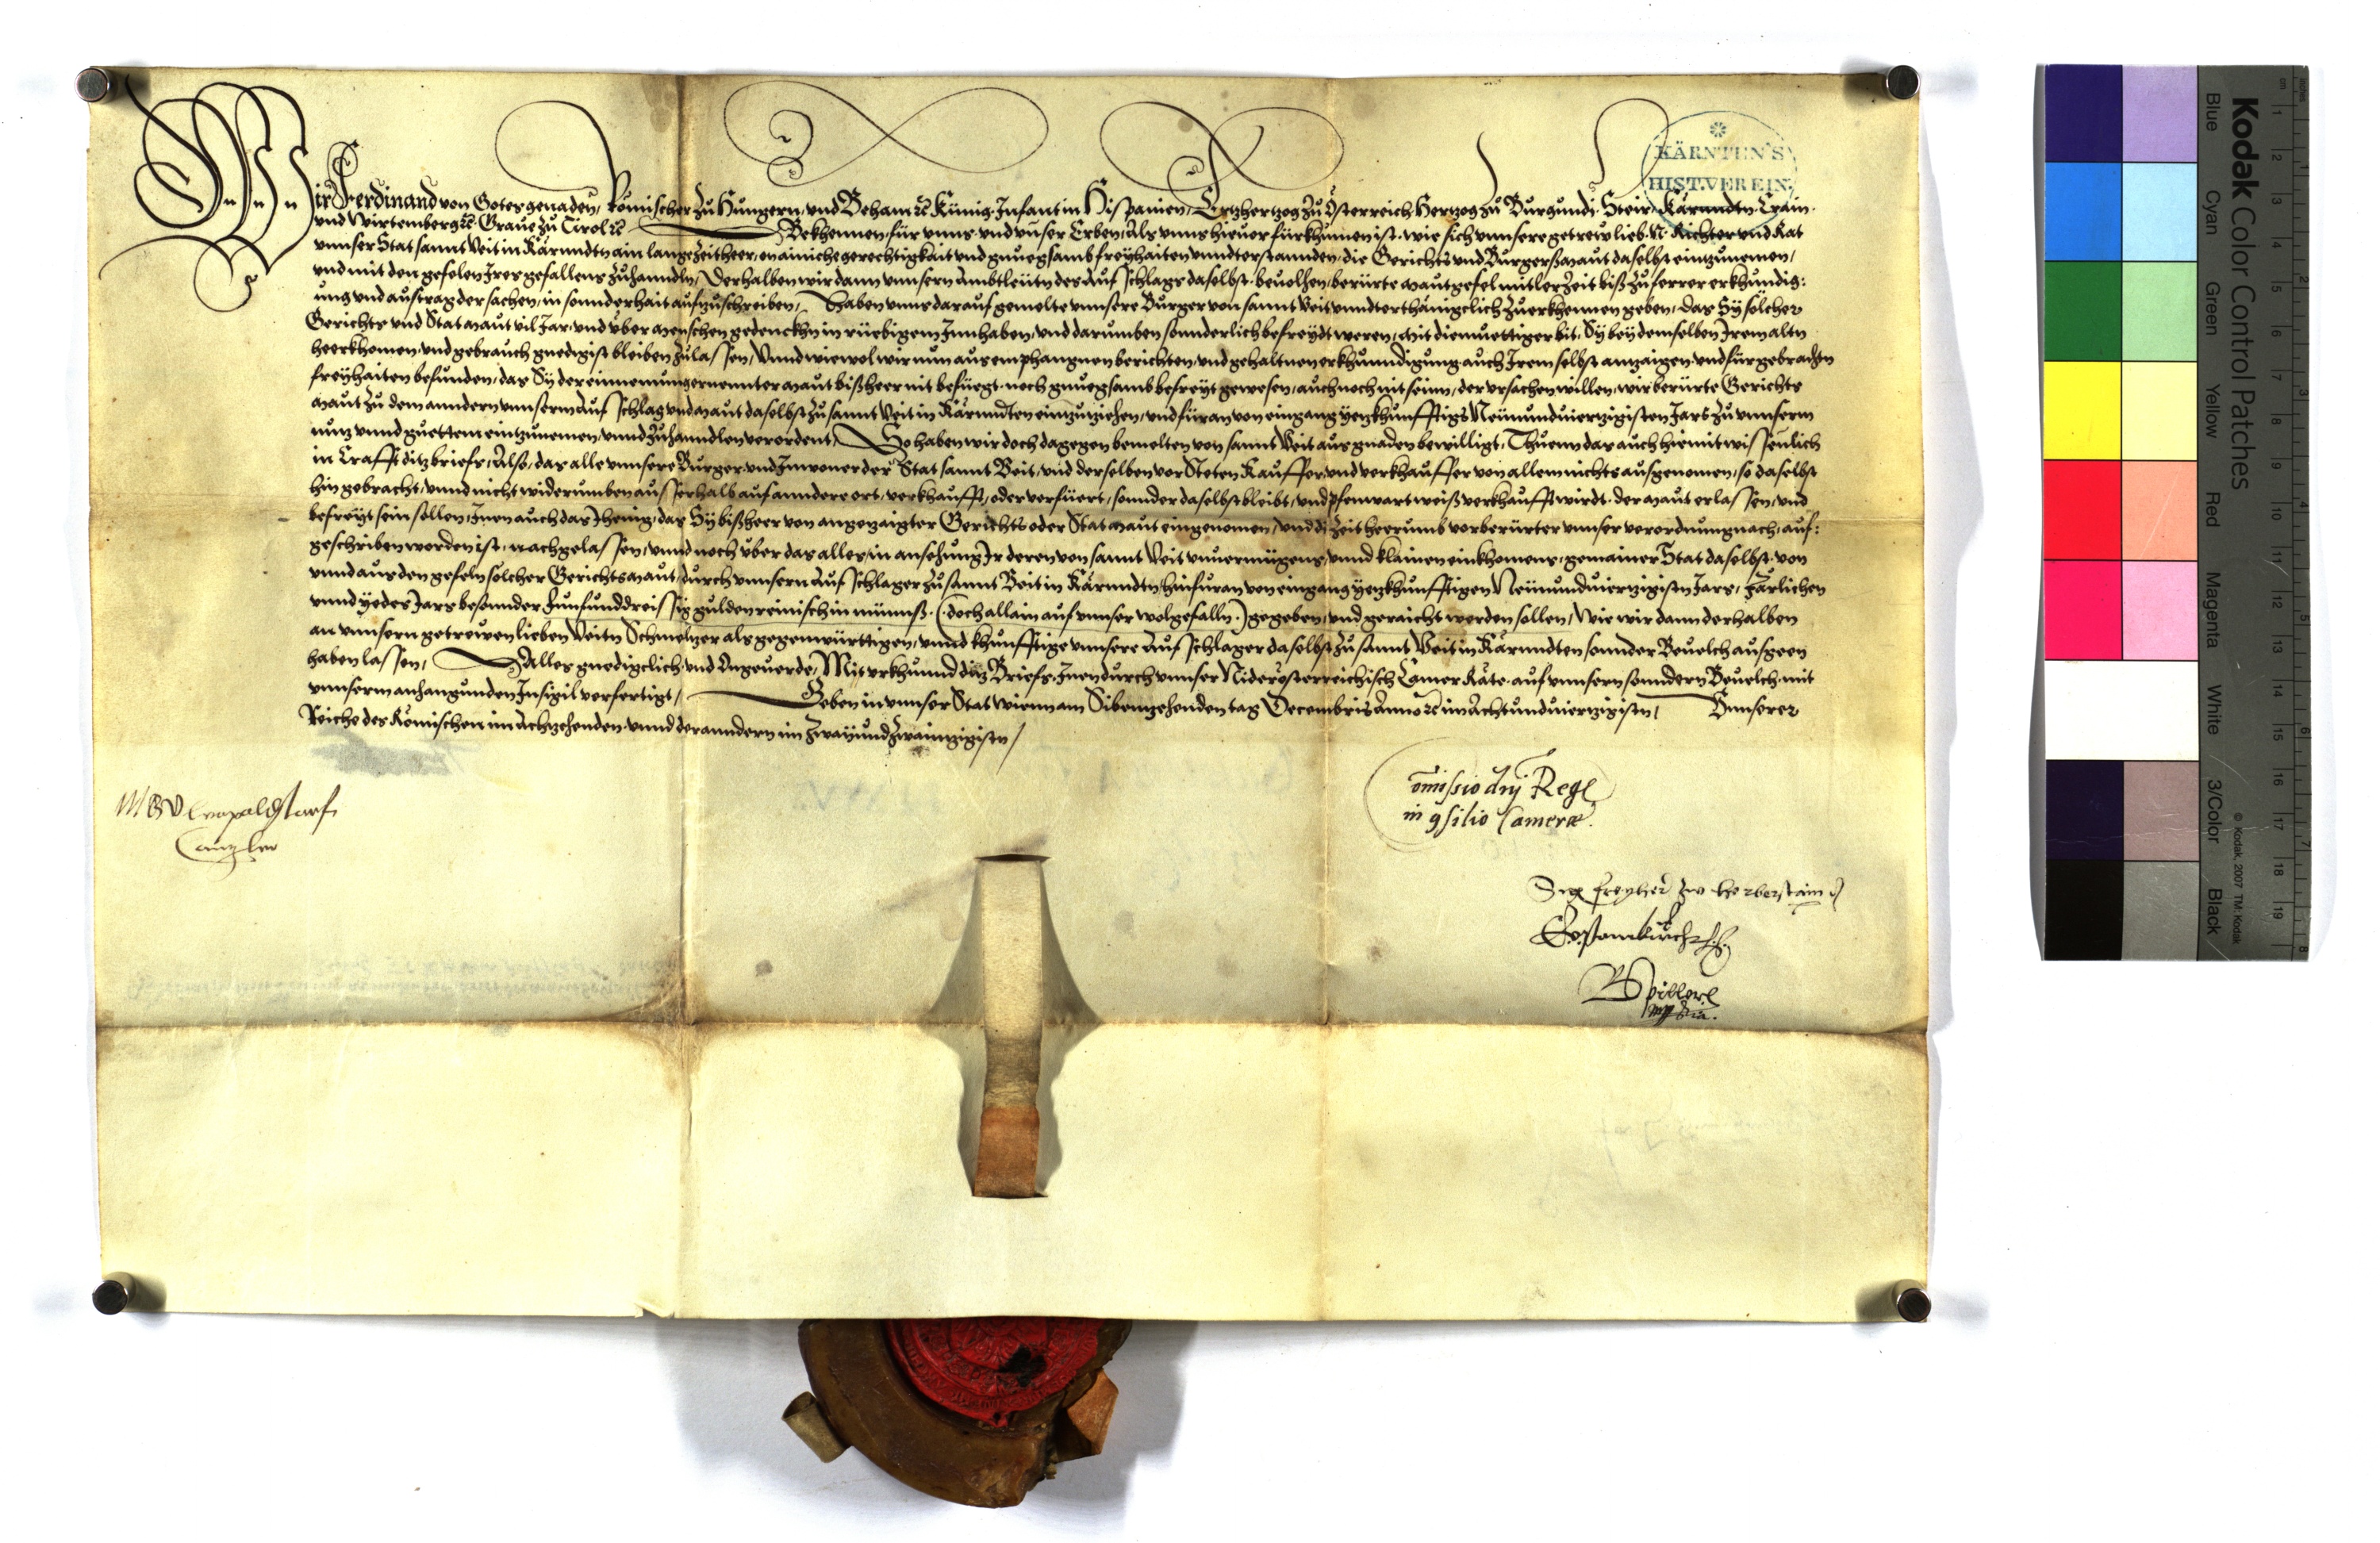 Wir Ferdinand von Gotes genaden, Römischer zu Hungern, und Beham etc Künig. Infant in Hispanien, Ertzhertzog zu Österreich Hertzog zu Burgundi. Steir. Kärnndtn. Crain.
und Wirtemberg etc Grave zu Tirol etc Bekhennen für unns und unser Erben, Als unns hievor fürkhumen ist, wie sich unnsere getrew lieb. N. Richter und Rat
unnser Stat sannt Veit in Kärnndtn ain lange zeit heer, on ainiche gerechtigkait und gnuegsamb freyhaiten unndterstannden, die Gerichts und Burgerßmaut daselbst eintzunemen,
und mit den gefelen Ires gefallens zuhanndln, Derhalben wir dann unnsern Ambtleütn des Aufschlags daselbst bevolhen, berürte mautgefel mitlerzeit biß zu ferrer erkhundig:
ung und austrag der sachen, in sonnderhait aufzuschreiben, Haben unns darauf gemelte unnsere Burger von sannt Veit unndterthänigclich zuerkhennen geben, das Sy solcher
Gerichts und Stat maut vil Jar, und über menschen gedenckhn in rüebigem Innhaben, und darumben sonnderlich befreydt weren, mit diemuettiger bit, Sy bey demselben Irem altn
heerkhomen, und gebrauch gnedigist bleiben zulassen, Unnd wiewol wir nun aus emphangnen berichten, und gehaltnen erkhunndigung auch Irem selbst anzaigen, und fürgebrachten
freyhaiten befunden, das Sy der einnemung ernennter maut bißheer nit befüegt, noch gnuegsamb befreyt gewesen, auch noch nit seinn, der ursachen willen, wir berürte Gerichts
maut zu dem anndern unnserm Aufschlag und maut daselbst zu sannt Veit in Kärnndten einzuziehen, und füran von eingang yetzkhunfftigs Neünundviertzigisten Jars zu unnserm
nutz unnd guettem eintzunemen, unnd zuhanndlen verordent, So haben wir doch dagegen bemelten von sannt Veit aus gnaden bewilligt, Thuen das auch hiemit wissenlich
in Crafft ditz briefs, Also, das alle unnsere Burger und Innwoner der Stat sannt Veit, und derselben vor Steten Kauffer, und verkhauffer von allem nichts ausgenomen, so daselbst
hin gebracht, unnd nicht widerumben ausserhalb auf anndere ort, verkhaufft, oder verfüert, sonnder daselbst bleibt, und pfenwart weiß verkhaufft wirdt, der maut erlassen, und
befreyt sein sollen, Inen auch das Jhenig, das Sy bißheer von angezaigter Gerichts oder Stat maut eingenomen, unnd zeitheerumb vorberürter unnser verordnung nach, auf:
geschriben worden ist, nachgelassen, unnd noch über das alles, in ansehung Ir deren von sannt Veit unvermügens, unnd klainen einkhomens, gemainer Stat daselbst von
unnd aus den gefeln solcher Gerichtsmaut, durch unnsern Aufschlager zu sannt Veit in Kärnndtn, hinfuran von eingang yetzkhunfftigen Neünundviertzigistn Jars, Järlichen
unnd yedes Jars besonnder Funfunddreissig gulden reinisch in münnß (doch allain auf unnser wolgefalln) gegeben, und geraicht werden sollen, Wie wir dann derhalben
an unnsern getrewen lieben Veitn Schmeltzer als gegenwürttigen, unnd khunfftige unnsere Aufschlager daselbst zu sannt Veit in Kärnndten sonnder Bevelch ausgeen
haben lassen, Alles gnedigclich und Ungeverde, Mit urkhunnd ditz Briefs, Inen durch unnser Niderösterreichisch Camer Räte, auf unnsern sonndern Bevelch, mit
unnserm anhangunden Insigil verfertigt, Geben in unnser Stat Wienn am Sibentzehenden tag Decembris Anno etc im Achtundviertzigistn, Unnserer
Reiche des Römischen im Achtzehenden, unnd der anndern im Zwayundzwaintzigistn,
KÄRNTEN'S
HIST. VEREIN.
M B V Leopaldstorf
Cantzler
Comissio dnj Regs
in gsilio Camerae.
Sig freyher zw herberstain
Kodak Color Control Patches
© Kodak, 2007 TM: Kodak
Blue Cyan Green Yellow Red Magenta White 3/Color Black